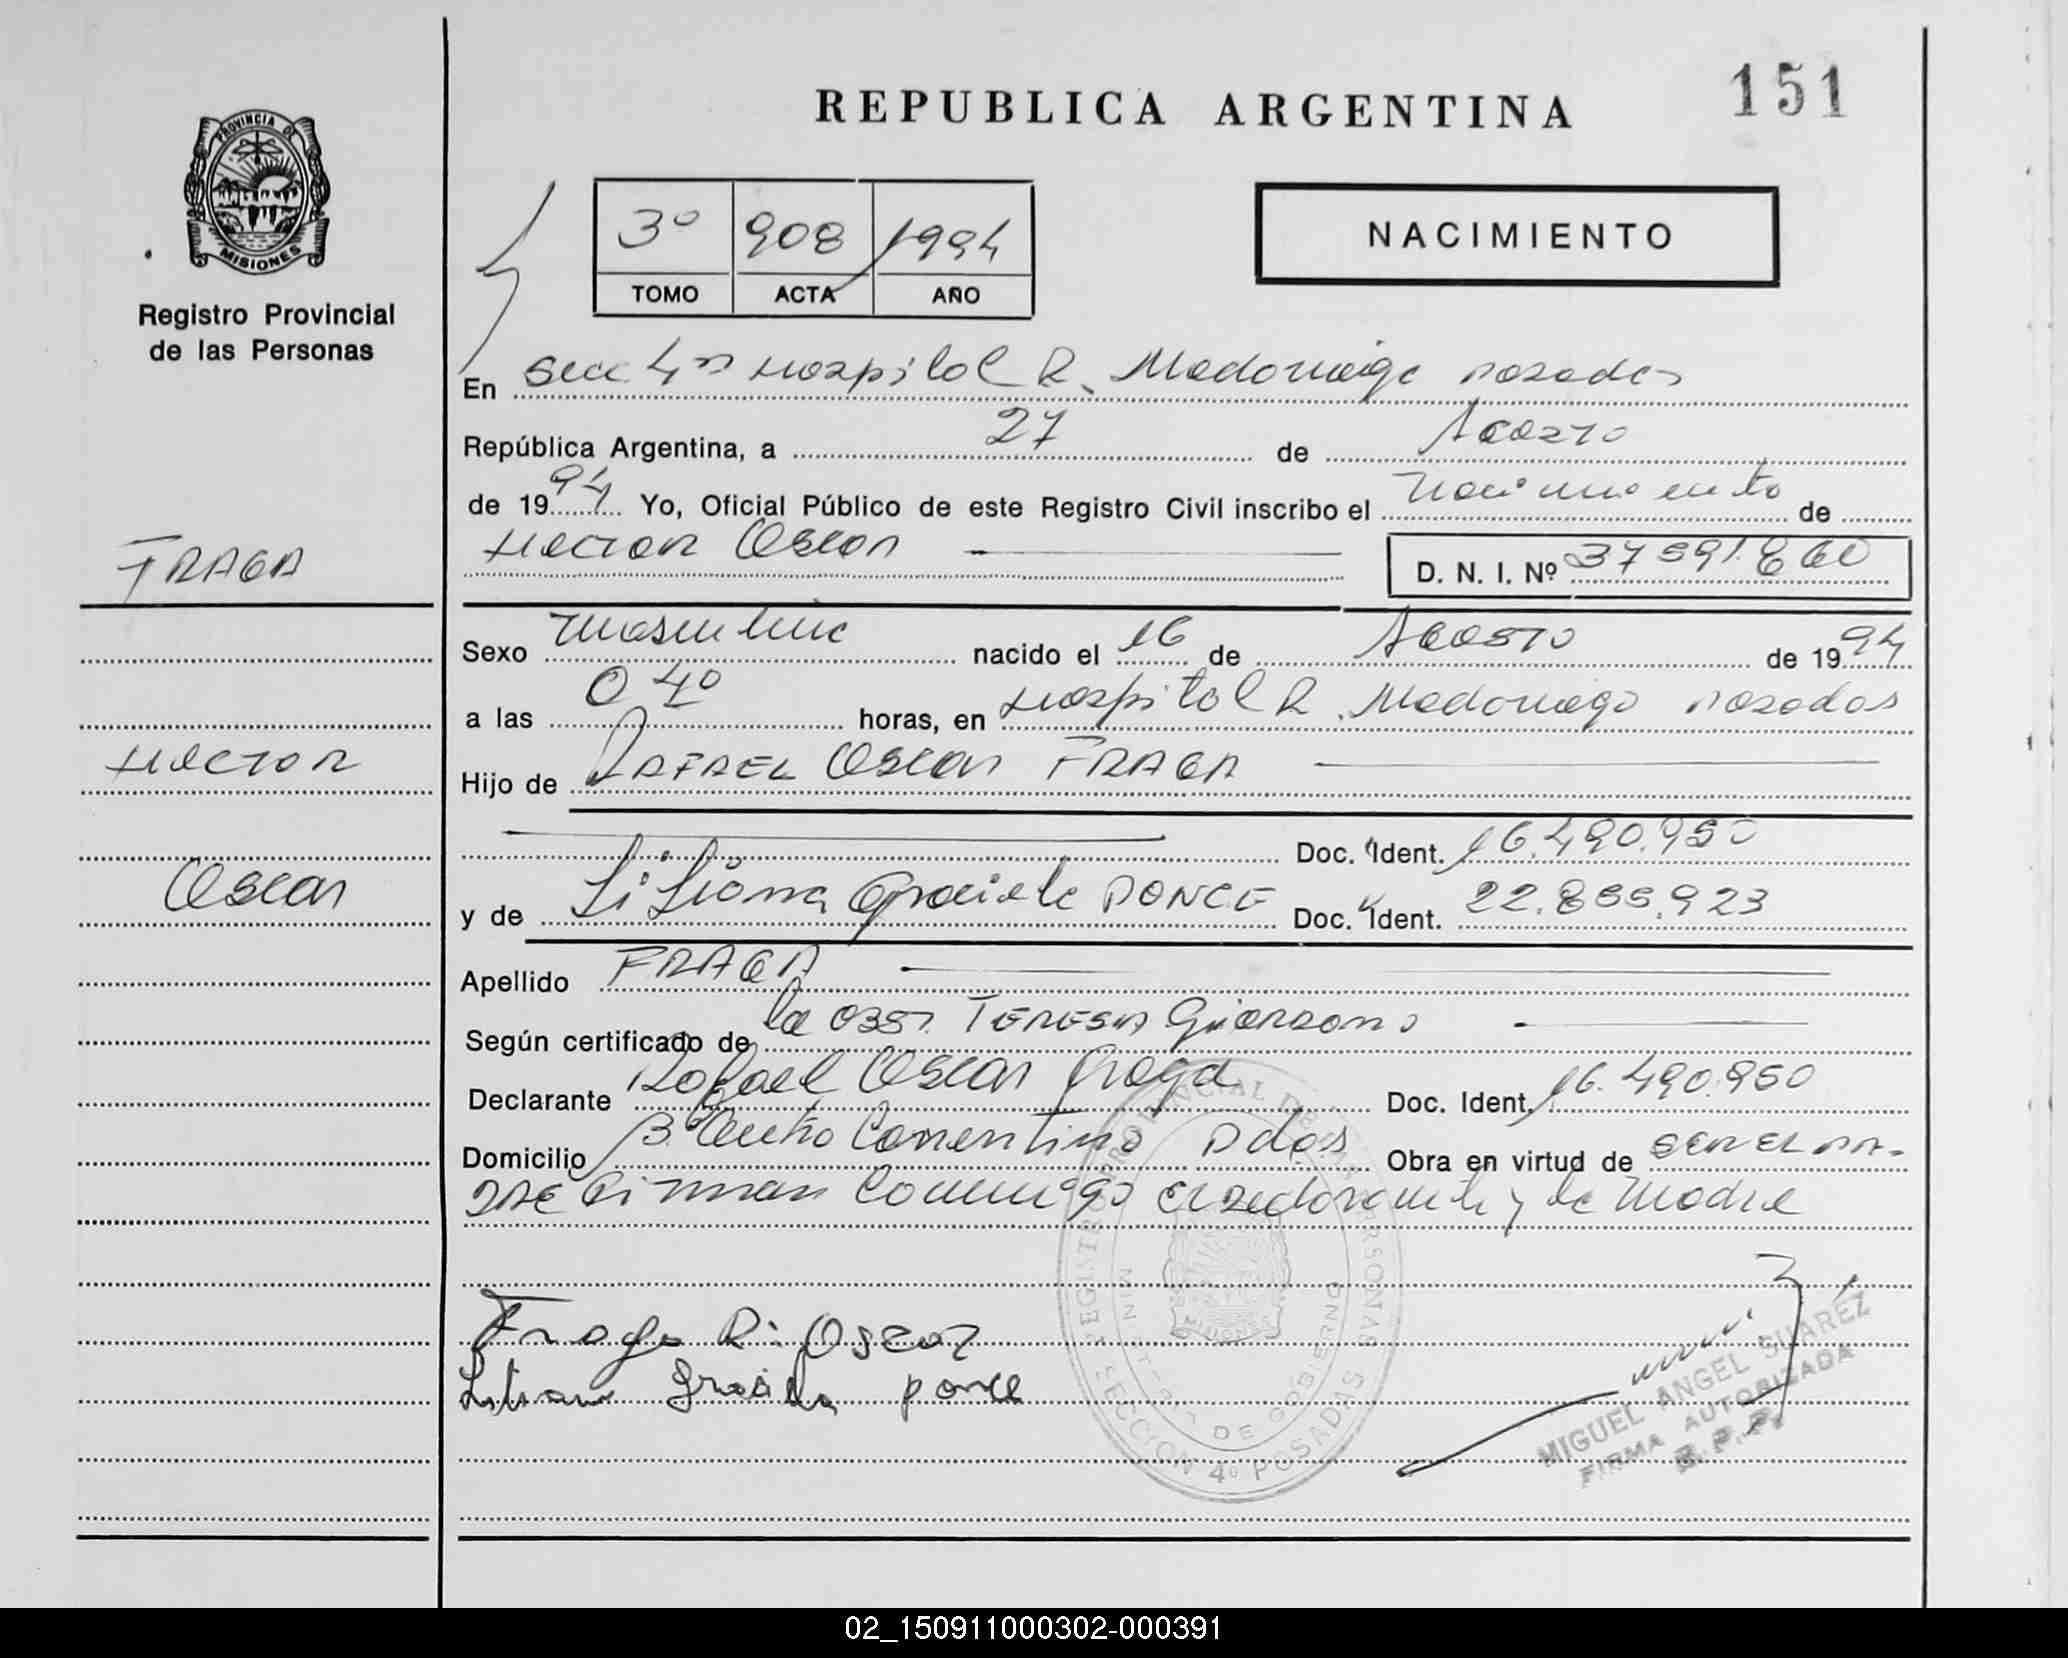 REPUBLICA ARGENTINA
151
PROVINCIA DE
MISIONES
Registro Provincial
de las Personas
3º 908 1994
TOMO ACTA AÑO
NACIMIENTO
En Secc 4ª Hospital R. Madariaga Posadas
República Argentina, a 27 de Agosto
de 1994 Yo, Oficial Público de este Registro Civil inscribo el Nacimiento de
Hector Oscar
D. N. I. Nº 37.591.860
FRAGA
Sexo Masculino nacido el 16 de Agosto de 1994
a las 04º horas, en Hospital R. Madariaga Posadas
Hector
Hijo de RAFAEL Oscar FRAGA
Doc. Ident. 16.490.950
Oscar
y de Liliana Graciela PONCE Doc. Ident. 22.855.923
Apellido FRAGA
Según certificado de la Obst. TERESA Giordano
Declarante Rafael Oscar Fraga Doc. Ident. 16.490.950
Domicilio Bº Centro Correntino Pdas Obra en virtud de SER EL PA-
DRE Firman Conmigo el declarante y la Madre
Fraga R. Oscar
Liliana Graciela Ponce
REGISTRO PROVINCIAL DE LAS PERSONAS
MINISTERIO DE GOBIERNO
SECCION 4º POSADAS
MIGUEL ANGEL SUAREZ
FIRMA AUTORIZADA
R. P. P.
02_150911000302-000391